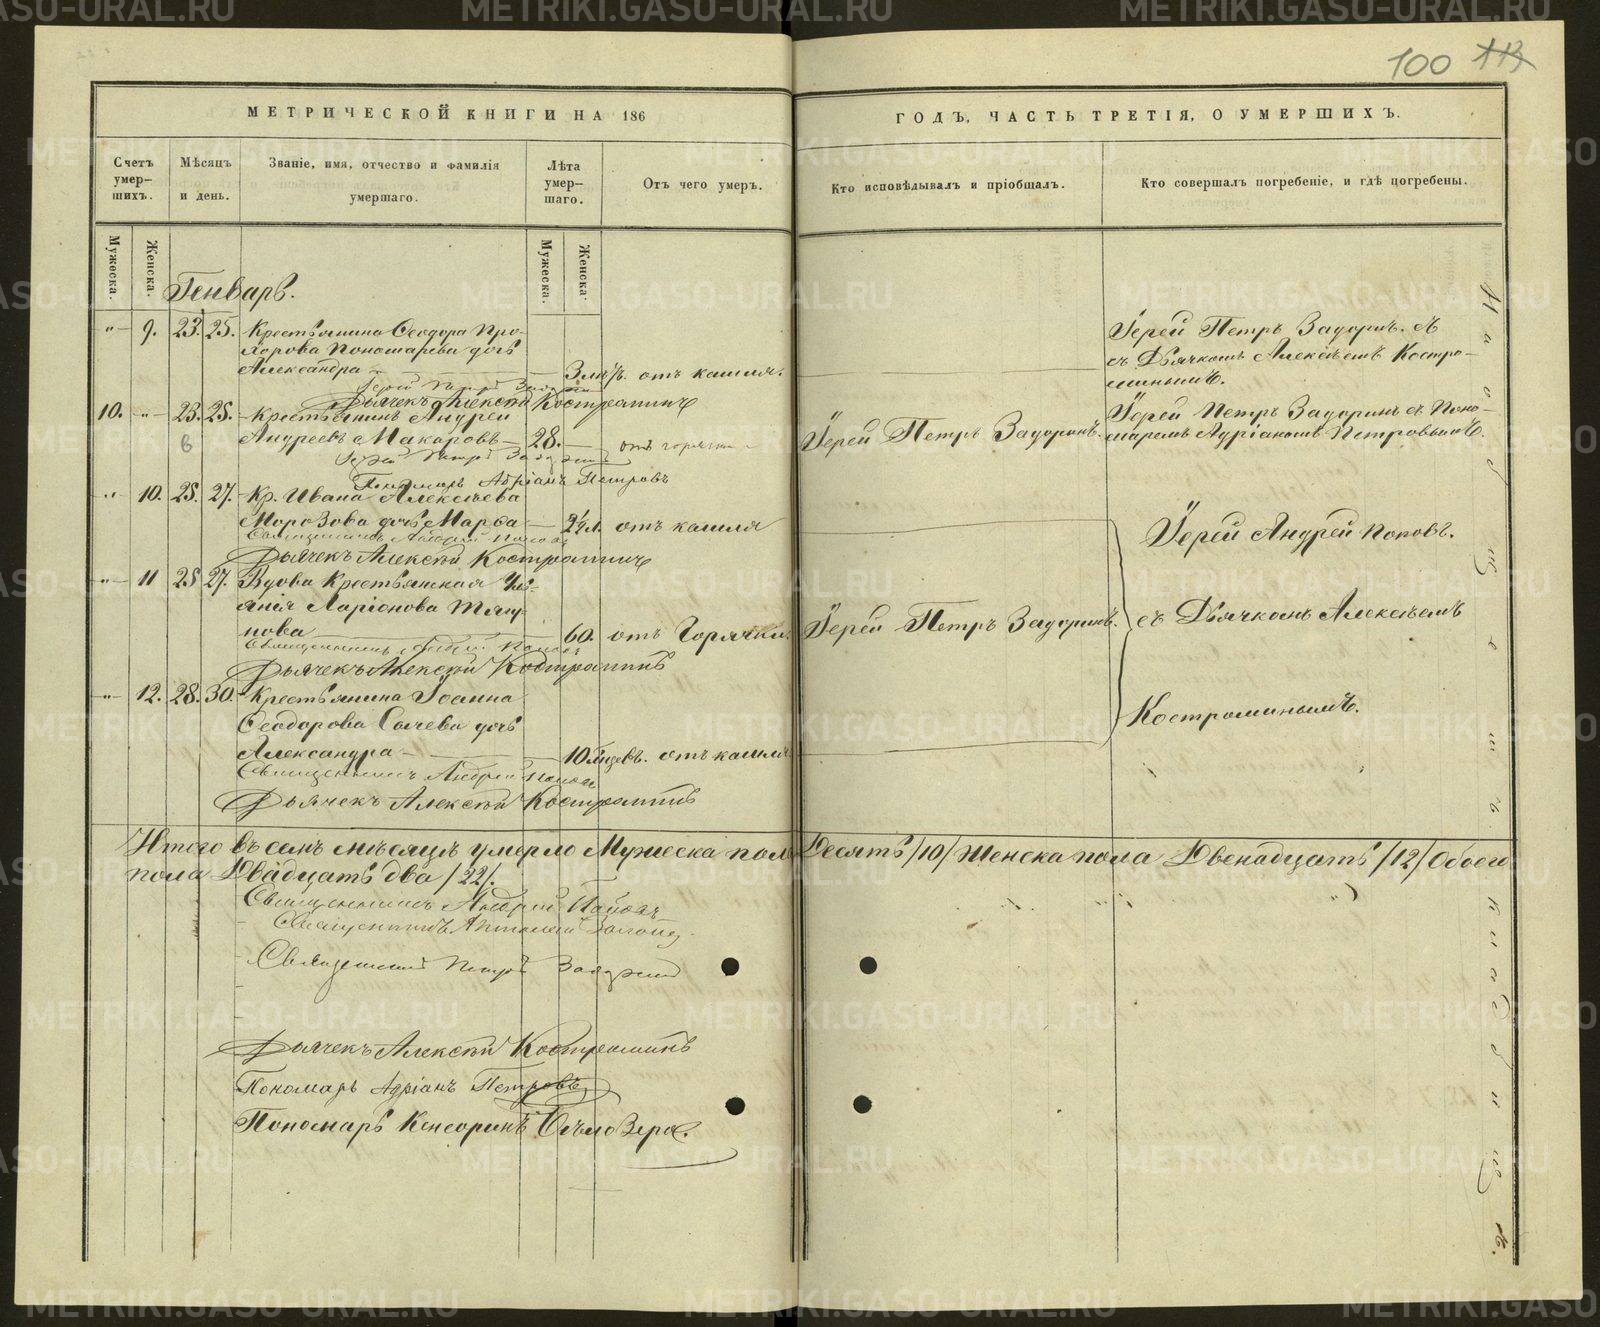 100 113
МЕТРИЧЕСКОЙ КНИГИ НА 186
ГОДЪ, ЧАСТЬ ТРЕТІЯ, О УМЕРШИХЪ.
Счетъ умер-шихъ.
Мѣсяцъ и день.
Званіе, имя, отчество и фамилія умершаго.
Лѣта умер-шаго.
Отъ чего умеръ.
Кто исповѣдывалъ и пріобщалъ.
Кто совершалъ погребеніе, и гдѣ погребены.
Мужеска.
Женска.
Мужеска.
Женска.
Генварь.
"
9. 23. 25. Крестьянина Ѳеодора Про-
хорова Пономарева дочь
Александра
отъ кашля.
Іерей Петръ Задоринъ
Дьячекъ Алексѣй Костроминъ
Іерей Петръ Задоринъ.
съ Дьячкомъ Алексѣемъ Костро-
минымъ.
10. " 23. 25. Крестьянинъ Андрей
Андреевъ Макаровъ 28. отъ горячки
в
Іерей Петръ Задоринъ
Пономарь Адріанъ Петровъ
Іерей Петръ Задоринъ.
Іерей Петръ Задоринъ съ Поно-
маремъ Адріаномъ Петровымъ.
" 10. 25. 27. Кр. Ивана Алексѣева
Морозова дочь Марѳа
отъ кашля
Священникъ Андрей Поповъ
Дьячекъ Алексѣй Костроминъ
Іерей Андрей Поповъ.
" 11 25 27. Вдова Крестьянская
Ларіонова Тягу-
нова 60. отъ Горячки.
Священникъ Андрей Поповъ
Дьячекъ Алексѣй Костроминъ
Іерей Петръ Задоринъ.
съ Дьячкомъ Алексѣемъ
Костроминымъ.
" 12. 28. 30. Крестьянина Іоанна
Ѳеодорова Сычева дочь
Александра 10
отъ кашля
Священникъ Андрей Поповъ
Дьячекъ Алексѣй Костроминъ
Итого въ семъ мѣсяцѣ умерло Мужеска пола Десять /10/ Женска пола Двенадцать /12/ Обоего
пола Двадцать два /22/.
Священникъ Андрей Поповъ
Священникъ
Священникъ Петръ Задоринъ
Дьячекъ Алексѣй Костроминъ
Пономарь Адріанъ Петровъ
Пономарь Кенсоринъ Бѣлозеров.
METRIKI.GASO-URAL.RU